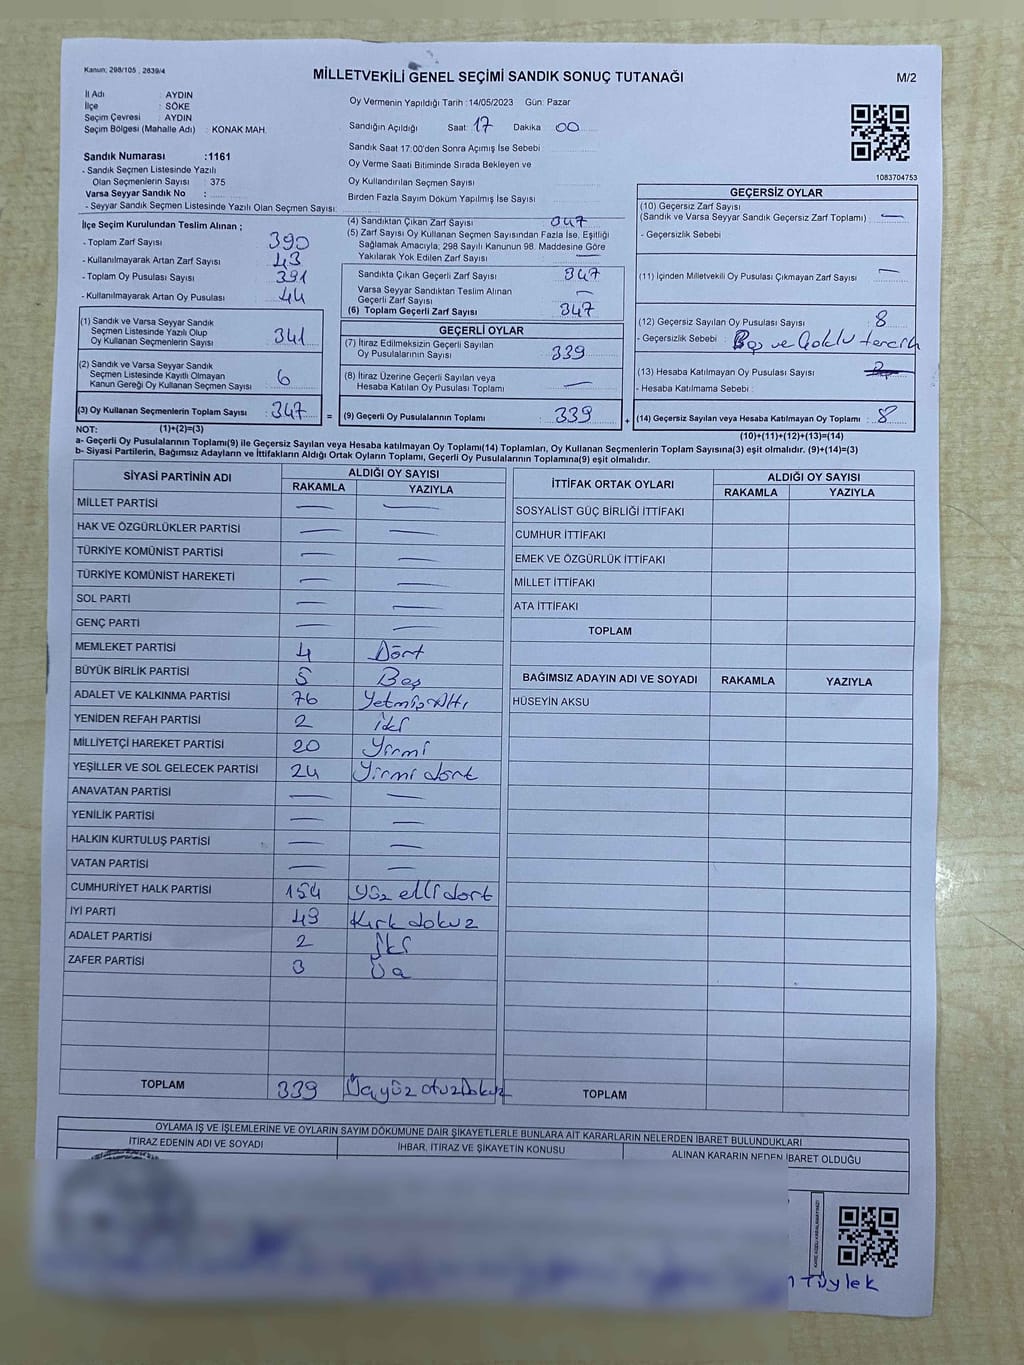 Kanun; 298/105 ; 2839/4
MİLLETVEKİLİ GENEL SEÇİMİ SANDIK SONUÇ TUTANAĞI
M/2
İl Adı : AYDIN
İlçe : SÖKE
Seçim Çevresi : AYDIN
Seçim Bölgesi (Mahalle Adı) : KONAK MAH.
Sandık Numarası :1161
- Sandık Seçmen Listesinde Yazılı
Olan Seçmenlerin Sayısı : 375
Varsa Seyyar Sandık No :
- Seyyar Sandık Seçmen Listesinde Yazılı Olan Seçmen Sayısı:
Oy Vermenin Yapıldığı Tarih :14/05/2023 Gün: Pazar
Sandığın Açıldığı Saat: 17 Dakika 00
Sandık Saat 17:00'den Sonra Açımış İse Sebebi
Oy Verme Saati Bitiminde Sırada Bekleyen ve
Oy Kullandırılan Seçmen Sayısı
Birden Fazla Sayım Döküm Yapılmış İse Sayısı
1083704753
İlçe Seçim Kurulundan Teslim Alınan ;
- Toplam Zarf Sayısı 390
- Kullanılmayarak Artan Zarf Sayısı 43
- Toplam Oy Pusulası Sayısı 391
- Kullanılmayarak Artan Oy Pusulası 44
(1) Sandık ve Varsa Seyyar Sandık
Seçmen Listesinde Yazılı Olup
Oy Kullanan Seçmenlerin Sayısı 341
(2) Sandık ve Varsa Seyyar Sandık
Seçmen Listesinde Kayıtlı Olmayan
Kanun Gereği Oy Kullanan Seçmen Sayısı 6
(3) Oy Kullanan Seçmenlerin Toplam Sayısı 347 =
(4) Sandıktan Çıkan Zarf Sayısı 347
(5) Zarf Sayısı Oy Kullanan Seçmen Sayısından Fazla İse, Eşitliği
Sağlamak Amacıyla; 298 Sayılı Kanunun 98. Maddesine Göre
Yakılarak Yok Edilen Zarf Sayısı —
Sandıkta Çıkan Geçerli Zarf Sayısı 347
Varsa Seyyar Sandıktan Teslim Alınan
Geçerli Zarf Sayısı —
(6) Toplam Geçerli Zarf Sayısı 347
GEÇERLİ OYLAR
(7) İtiraz Edilmeksizin Geçerli Sayılan
Oy Pusulalarının Sayısı 339
(8) İtiraz Üzerine Geçerli Sayılan veya
Hesaba Katılan Oy Pusulası Toplamı —
(9) Geçerli Oy Pusulalarının Toplamı 339 +
GEÇERSİZ OYLAR
(10) Geçersiz Zarf Sayısı
(Sandık ve Varsa Seyyar Sandık Geçersiz Zarf Toplamı) —
- Geçersizlik Sebebi
(11) İçinden Milletvekili Oy Pusulası Çıkmayan Zarf Sayısı —
(12) Geçersiz Sayılan Oy Pusulası Sayısı 8
- Geçersizlik Sebebi : Boş ve Çoklu tercih
(13) Hesaba Katılmayan Oy Pusulası Sayısı
- Hesaba Katılmama Sebebi :
(14) Geçersiz Sayılan veya Hesaba Katılmayan Oy Toplamı : 8
NOT: (1)+(2)=(3)
(10)+(11)+(12)+(13)=(14)
a- Geçerli Oy Pusulalarının Toplamı(9) ile Geçersiz Sayılan veya Hesaba katılmayan Oy Toplamı(14) Toplamları, Oy Kullanan Seçmenlerin Toplam Sayısına(3) eşit olmalıdır. (9)+(14)=(3)
b- Siyasi Partilerin, Bağımsız Adayların ve İttifakların Aldığı Ortak Oyların Toplamı, Geçerli Oy Pusulalarının Toplamına(9) eşit olmalıdır.
SİYASİ PARTİNİN ADI ALDIĞI OY SAYISI
RAKAMLA YAZIYLA
MİLLET PARTİSİ — —
HAK VE ÖZGÜRLÜKLER PARTİSİ — —
TÜRKİYE KOMÜNİST PARTİSİ — —
TÜRKİYE KOMÜNİST HAREKETİ — —
SOL PARTİ — —
GENÇ PARTİ — —
MEMLEKET PARTİSİ 4 Dört
BÜYÜK BİRLİK PARTİSİ 5 Beş
ADALET VE KALKINMA PARTİSİ 76 Yetmiş Altı
YENİDEN REFAH PARTİSİ 2 iki
MİLLİYETÇİ HAREKET PARTİSİ 20 Yirmi
YEŞİLLER VE SOL GELECEK PARTİSİ 24 Yirmi dört
ANAVATAN PARTİSİ — —
YENİLİK PARTİSİ — —
HALKIN KURTULUŞ PARTİSİ — —
VATAN PARTİSİ — —
CUMHURİYET HALK PARTİSİ 154 Yüz elli dört
İYİ PARTİ 49 Kırk dokuz
ADALET PARTİSİ 2 İki
ZAFER PARTİSİ 3 Üç
TOPLAM 339 Üçyüz otuzDokuz
İTTİFAK ORTAK OYLARI ALDIĞI OY SAYISI
RAKAMLA YAZIYLA
SOSYALİST GÜÇ BİRLİĞİ İTTİFAKI
CUMHUR İTTİFAKI
EMEK VE ÖZGÜRLÜK İTTİFAKI
MİLLET İTTİFAKI
ATA İTTİFAKI
TOPLAM
BAĞIMSIZ ADAYIN ADI VE SOYADI RAKAMLA YAZIYLA
HÜSEYİN AKSU
TOPLAM
OYLAMA İŞ VE İŞLEMLERİNE VE OYLARIN SAYIM DÖKÜMÜNE DAİR ŞİKAYETLERLE BUNLARA AİT KARARLARIN NELERDEN İBARET BULUNDUKLARI
İTİRAZ EDENİN ADI VE SOYADI İHBAR, İTİRAZ VE ŞİKAYETİN KONUSU ALINAN KARARIN NEDEN İBARET OLDUĞU
Tüylek